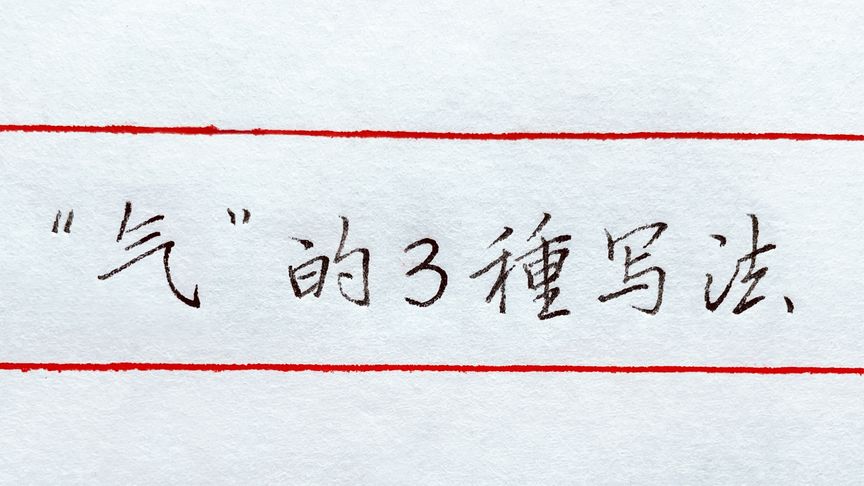 “气”的3種写法